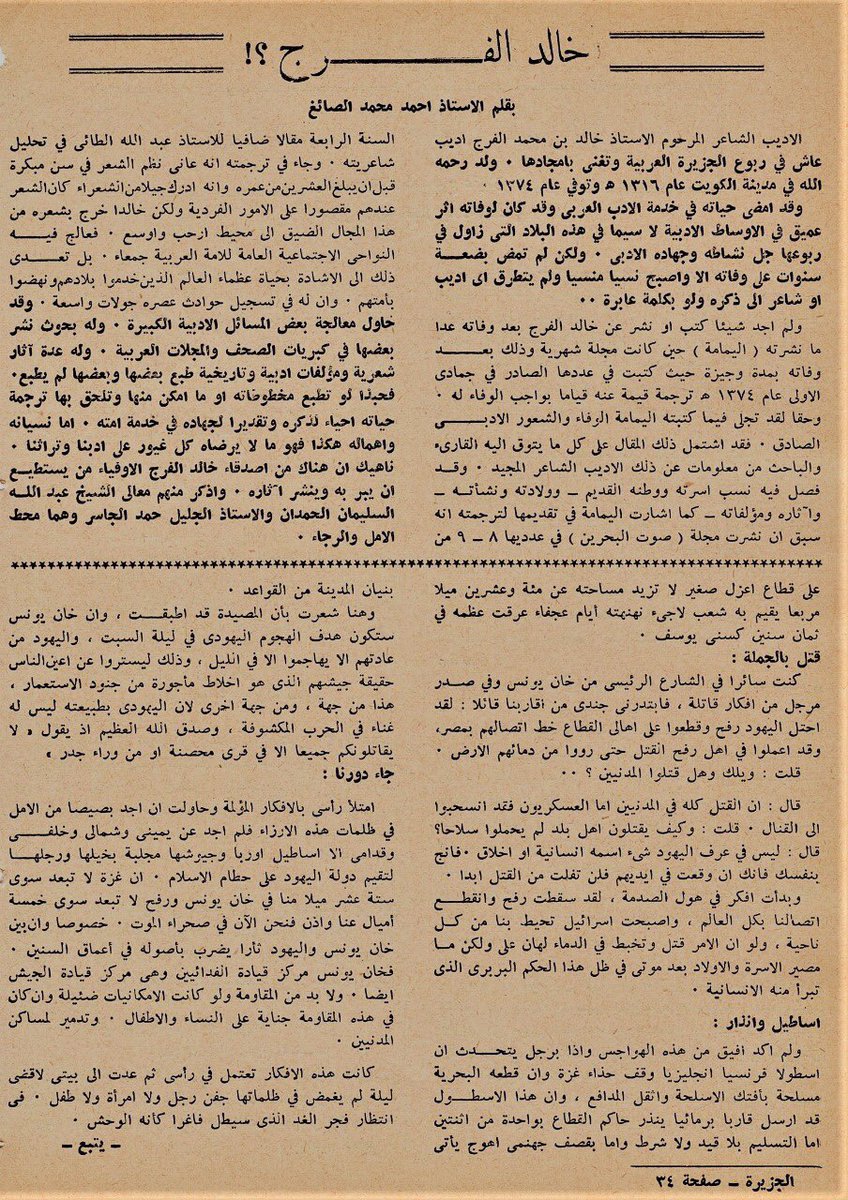 خالد الفـــــــرج ؟!
بقلم الاستاذ احمد محمد الصائغ
الاديب الشاعر المرحوم الاستاذ خالد بن محمد الفرج اديب
عاش في ربوع الجزيرة العربية وتغنى بامجادها ٠ ولد رحمه
الله في مدينة الكويت عام ١٣١٦ هـ وتوفي عام ١٣٧٤ ٠
وقد امضى حياته في خدمة الادب العربى وقد كان لوفاته اثر
عميق في الاوساط الادبية لا سيما في هذه البلاد التى زاول في
ربوعها جل نشاطه وجهاده الادبى ٠ ولكن لم تمض بضعة
سنوات على وفاته الا واصبح نسيا منسيا ولم يتطرق اى اديب
او شاعر الى ذكره ولو بكلمة عابرة ٠٠
ولم اجد شيئا كتب او نشر عن خالد الفرج بعد وفاته عدا
ما نشرته ( اليمامة ) حين كانت مجلة شهرية وذلك بعـــد
وفاته بمدة وجيزة حيث كتبت في عددها الصادر في جمادى
الاولى عام ١٣٧٤ هـ ترجمة قيمة عنه قياما بواجب الوفاء له ٠
وحقا لقد تجلى فيما كتبته اليمامة الوفاء والشعور الادبـــى
الصادق ٠ فقد اشتمل ذلك المقال على كل ما يتوق اليه القارىء
والباحث من معلومات عن ذلك الاديب الشاعر المجيد ٠ وقـد
فصل فيه نسب اسرته ووطنه القديم ــ وولادته ونشأتـه ــ
وآثاره ومؤلفاته ــ كما اشارت اليمامة في تقديمها لترجمته انه
سبق ان نشرت مجلة ( صوت البحرين ) في عدديها ٨ ــ ٩ من
السنة الرابعة مقالا ضافيا للاستاذ عبد الله الطائى في تحليل
شاعريته ٠ وجاء في ترجمته انه عانى نظم الشعر في سن مبكرة
قبل ان يبلغ العشرين من عمره وانه ادرك جيلا من الشعراء كان الشعر
عندهم مقصورا على الامور الفردية ولكن خالدا خرج بشعره من
هذا المجال الضيق الى محيط ارحب واوسع ٠ فعالج فيـــه
النواحى الاجتماعية العامة للامة العربية جمعاء ٠ بل تعــدى
ذلك الى الاشادة بحياة عظماء العالم الذين خدموا بلادهم ونهضوا
بأمتهم ٠ وان له في تسجيل حوادث عصره جولات واسعة ٠ وقد
حاول معالجة بعض المسائل الادبية الكبيرة ٠ وله بحوث نشر
بعضها في كبريات الصحف والمجلات العربية ٠ وله عدة آثار
شعرية ومؤلفات ادبية وتاريخية طبع بعضها وبعضها لم يطبع٠
فحبذا لو تطبع مخطوطاته او ما امكن منها وتلحق بها ترجمة
حياته احياء لذكره وتقديرا لجهاده في خدمة امته ٠ اما نسيانه
واهماله هكذا فهو ما لا يرضاه كل غيور على ادبنا وتراثنا ٠
ناهيك ان هناك من اصدقاء خالد الفرج الاوفياء من يستطيع
ان يبر به وينشر آثاره ٠ واذكر منهم معالى الشيخ عبد اللـه
السليمان الحمدان والاستاذ الجليل حمد الجاسر وهما محط
الامل والرجاء ٠
على قطاع اعزل صغير لا تزيد مساحته عن مئة وعشرين ميلا
مربعا يقيم به شعب لاجىء نهنهته أيام عجفاء عرقت عظمه في
ثمان سنين كسنى يوسف ٠
قتل بالجملة :
كنت سائرا في الشارع الرئيسى من خان يونس وفي صـدر
مرجل من افكار قاتلة ، فابتدرنى جندى من اقاربنا قائلا : لقد
احتل اليهود رفح وقطعوا على اهالى القطاع خط اتصالهم بمصر،
وقد اعملوا في اهل رفح القتل حتى رووا من دمائهم الارض ٠
قلت : ويلك وهل قتلوا المدنيين ؟ ٠٠
قال : ان القتل كله في المدنيين اما العسكريون فقد انسحبوا
الى القنال ٠ قلت : وكيف يقتلون اهل بلد لم يحملوا سلاحا؟
قال : ليس في عرف اليهود شىء اسمه انسانية او اخلاق ٠فانج
بنفسك فانك ان وقعت في ايديهم فلن تفلت من القتل ابدا ٠
وبدأت افكر في هول الصدمة ، لقد سقطت رفح وانقطـع
اتصالنا بكل العالم ، واصبحت اسرائيل تحيط بنا من كـل
ناحية ، ولو ان الامر قتل وتخبط في الدماء لهان على ولكن مـا
مصير الاسرة والاولاد بعد موتى في ظل هذا الحكم البربرى الذى
تبرأ منه الانسانية ٠
اساطيل وانذار :
ولم اكد افيق من هذه الهواجس واذا برجل يتحــدث ان
اسطولا فرنسيا انجليزيا وقف حذاء غزة وان قطعه البحرية
مسلحة بأفتك الاسلحة واثقل المدافع ، وان هذا الاسطــول
قد ارسل قاربا برمائيا ينذر حاكم القطاع بواحدة من اثنتين
اما التسليم بلا قيد ولا شرط واما بقصف جهنمى اهوج يأتى
بنيان المدينة من القواعد ٠
وهنا شعرت بأن المصيدة قد اطبقـت ، وان خان يونس
ستكون هدف الهجوم اليهودى في ليلة السبت ، واليهود من
عادتهم الا يهاجموا الا في الليل ، وذلك ليستروا عن اعين الناس
حقيقة جيشهم الذى هو اخلاط مأجورة من جنود الاستعمار ،
هذا من جهة ، ومن جهة اخرى لان اليهودى بطبيعته ليس له
غناء في الحرب المكشوفة ، وصدق الله العظيم اذ يقول « لا
يقاتلونكم جميعا الا في قرى محصنة او من وراء جدر »
جاء دورنا :
امتلأ رأسى بالافكار المؤلمة وحاولت ان اجد بصيصا من الامل
في ظلمات هذه الارزاء فلم اجد عن يمينى وشمالى وخلفــى
وقدامى الا اساطيل اوربا وجيوشها مجلبة بخيلها ورجلهـا
لتقيم دولة اليهود على حطام الاسلام ٠ ان غزة لا تبعد سوى
ستة عشر ميلا منا في خان يونس ورفح لا تبعد سوى خمسة
أميال عنا واذن فنحن الآن في صحراء الموت ٠ خصوصا وان بين
خان يونس واليهود ثارا يضرب بأصوله في أعماق السنين ٠
فخان يونس مركز قيادة الفدائيين وهى مركز قيادة الجيش
ايضا ٠ ولا بد من المقاومة ولو كانت الامكانيات ضئيلة وان كان
في هذه المقاومة جناية على النساء والاطفال ٠ وتدمير لمساكن
المدنيين ٠
كانت هذه الافكار تعتمل في رأسى ثم عدت الى بيتى لاقضى
ليلة لم يغمض في ظلماتها جفن رجل ولا امرأة ولا طفل ٠ فى
انتظار فجر الغد الذى سيطل فاغرا كأنه الوحش ٠
ــ يتبع ــ
الجزيرة ــ صفحة ٣٤